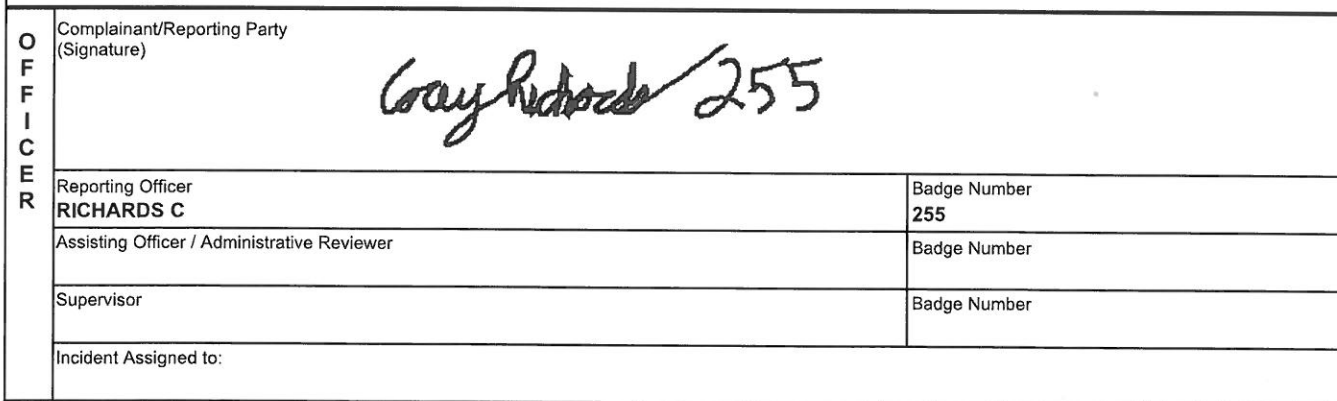 OFFICER
Complainant/Reporting Party
(Signature)
Richards / 255
Reporting Officer
RICHARDS C
Badge Number
255
Assisting Officer / Administrative Reviewer
Badge Number
Supervisor
Badge Number
Incident Assigned to: